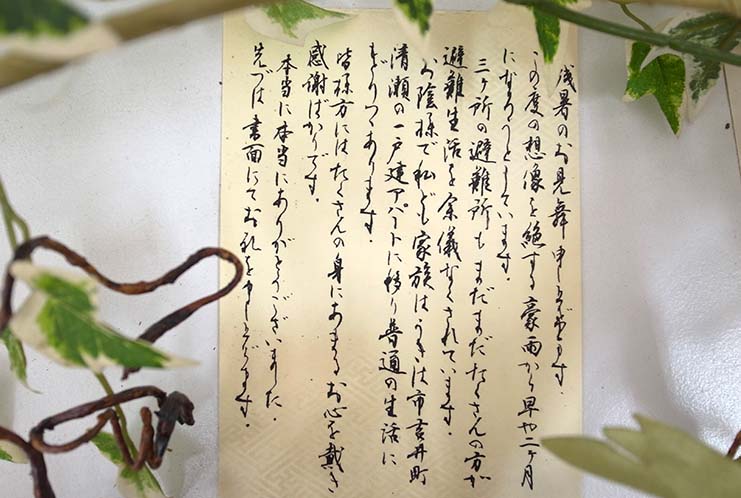 残暑のお見舞申し上げます。
この度の想像を絶する豪雨から早や二ヶ月
になろうとしています。
三ヶ所の避難所もまだまだたくさんの方が
避難生活を余儀なくされています。
お陰様で私ども家族はうきは市吉井町
清瀬の一戸建アパートに移り普通の生活に
もどりつゝあります。
皆様方にはたくさんの身にあまるお心を戴き
感謝ばかりです。
本当に本当にありがとうございました。
先づは書面にてお礼を申し上げます。